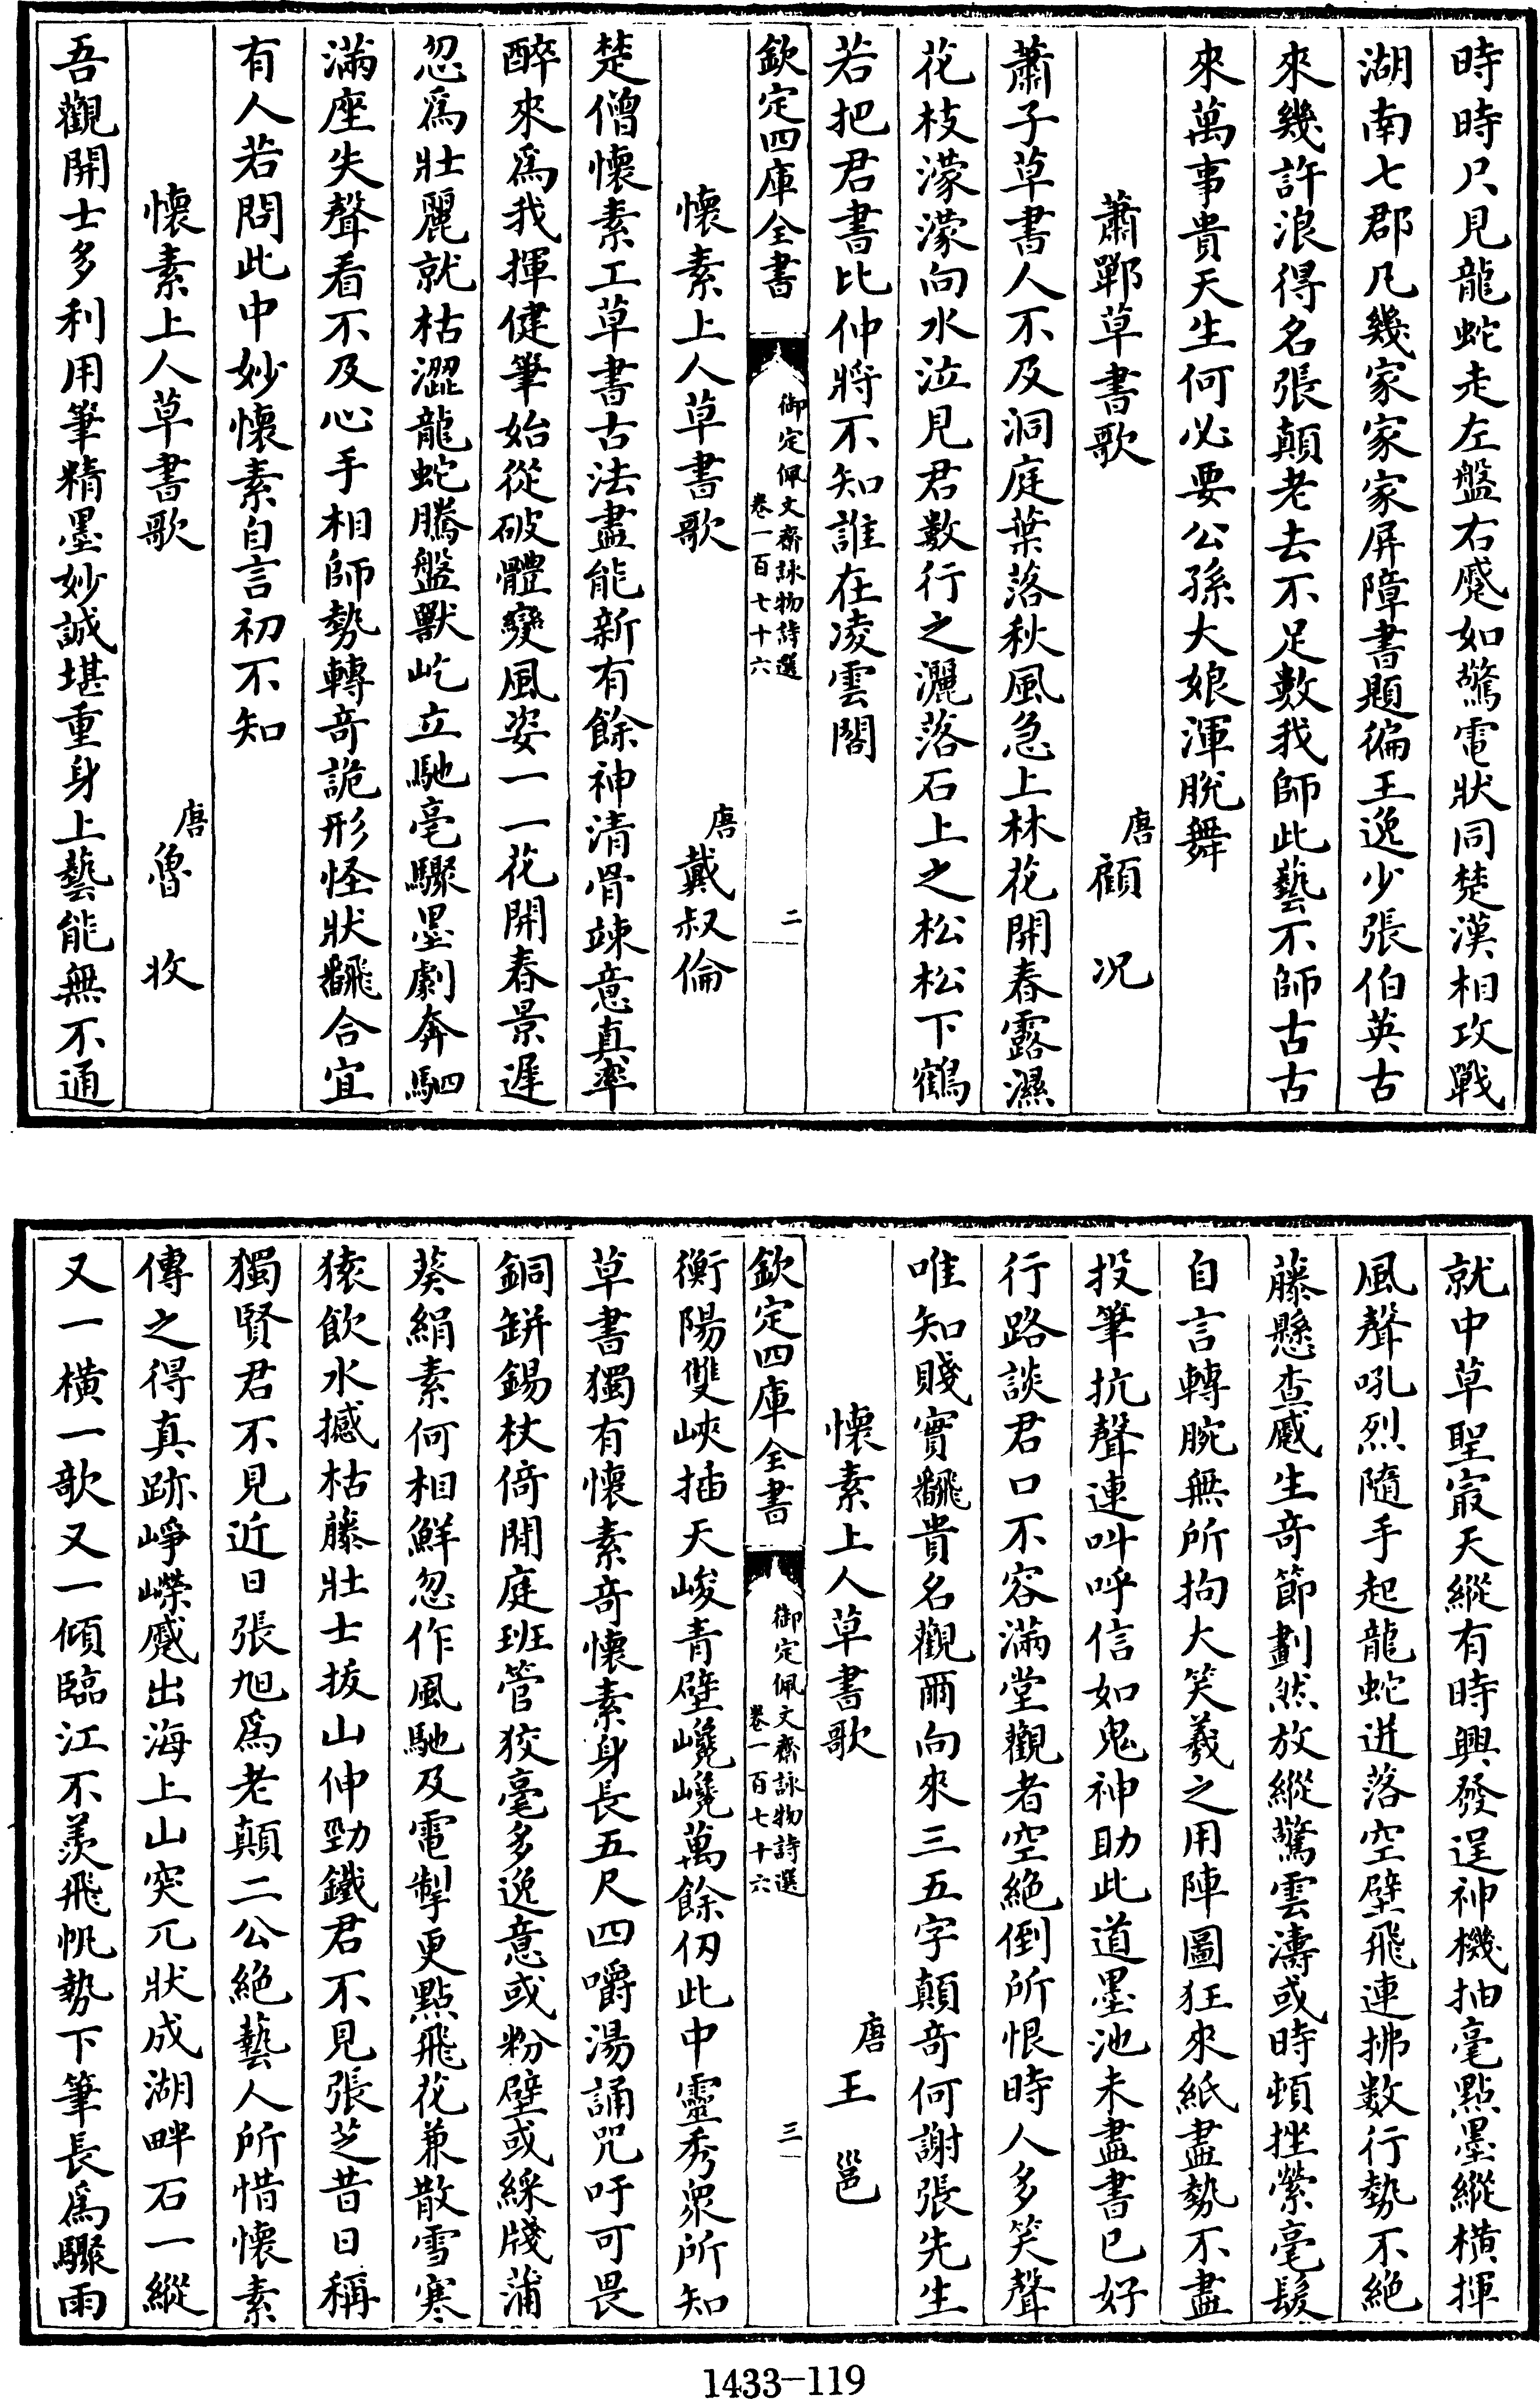 時時只見龍蛇走左盤右蹙如驚電狀同楚漢相攻戰
湖南七郡凡幾家家家屏障書題徧王逸少張伯英古
來幾許浪得名張顛老去不足數我師此藝不師古古
來萬事貴天生何必要公孫大娘渾脫舞
蕭鄲草書歌 唐 顧況
蕭子草書人不及洞庭葉落秋風急上林花開春露濕
花枝濛濛向水泣見君數行之灑落石上之松松下鶴
若把君書比仲將不知誰在凌雲閣
欽定四庫全書 御定佩文齋詠物詩選 卷一百七十六 二
懷素上人草書歌 唐 戴叔倫
楚僧懷素工草書古法盡能新有餘神清骨竦意真率
醉來爲我揮健筆始從破體變風姿一一花開春景遲
忽爲壯麗就枯澀龍蛇騰盤獸屹立馳毫驟墨劇奔駟
滿座失聲看不及心手相師勢轉奇詭形怪狀飜合宜
有人若問此中妙懷素自言初不知
懷素上人草書歌 唐 魯收
吾觀開士多利用筆精墨妙誠堪重身上藝能無不通
就中草聖最天縱有時興發逞神機抽毫點墨縱橫揮
風聲吼烈隨手起龍蛇迸落空壁飛連拂數行勢不絕
藤懸查蹙生奇節劃然放縱驚雲濤或時頓挫縈毫髮
自言轉腕無所拘大笑羲之用陣圖狂來紙盡勢不盡
投筆抗聲連叫呼信如鬼神助此道墨池未盡書已好
行路談君口不容滿堂觀者空絕倒所恨時人多笑聲
唯知賤實飜貴名觀爾向來三五字顛奇何謝張先生
懷素上人草書歌 唐 王邕
欽定四庫全書 御定佩文齋詠物詩選 卷一百七十六 三
衡陽雙峽插天峻青壁巉巉萬餘仞此中靈秀衆所知
草書獨有懷素奇懷素身長五尺四嚼湯誦咒吁可畏
銅缾錫杖倚閒庭班管狡毫多逸意或粉壁或綵牋蒲
葵絹素何相鮮忽作風馳及電掣更點飛花兼散雪寒
猿飲水撼枯藤壯士拔山伸勁鐵君不見張芝昔日稱
獨賢君不見近日張旭爲老顛二公絕藝人所惜懷素
傳之得真跡崢嶸蹙出海上山突兀狀成湖畔石一縱
又一橫一欹又一傾臨江不羨飛帆勢下筆長爲驟雨
1433-119